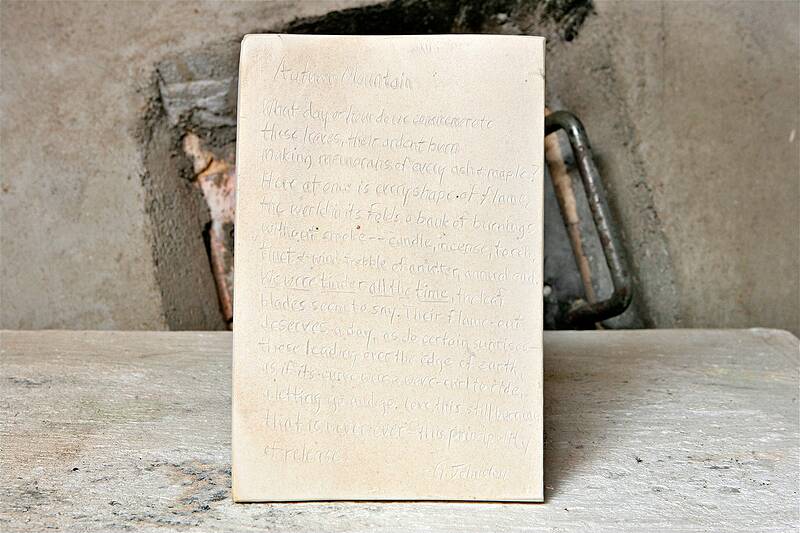 Autumn Mountain
What day or hour do we commemorate
these leaves, their ardent burn
making memorials of every ash & maple?
Here at once is every shape of flame,
the world in its folds, a bank of burnings
without smoke -- candle, incense, torch,
tinct & wind-treble of another, annual end.
We were tinder all the time, the leaf
blades seem to say. Their flame-out
deserves a day, as do certain sunrises --
those leading over the edge of earth
as if its curve were a wave-curl to ride,
letting go
that is never over -- this principality
of release.